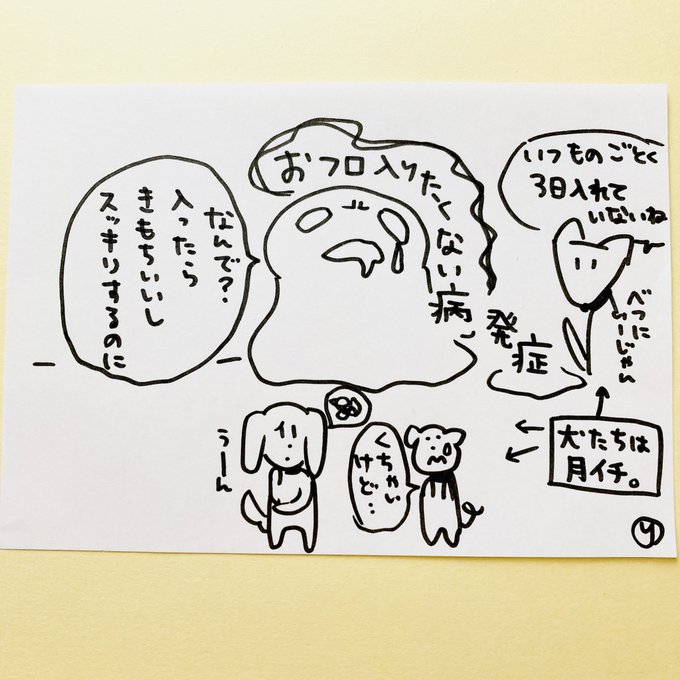 おフロ入りたくない病
発症
いつものごとく
3日入れて
いないね
べつに
いーじゃん
なんで?
入ったら
きもちいいし
スッキリするのに
うーん
くちゃい
けど…
犬たちは
月イチ。